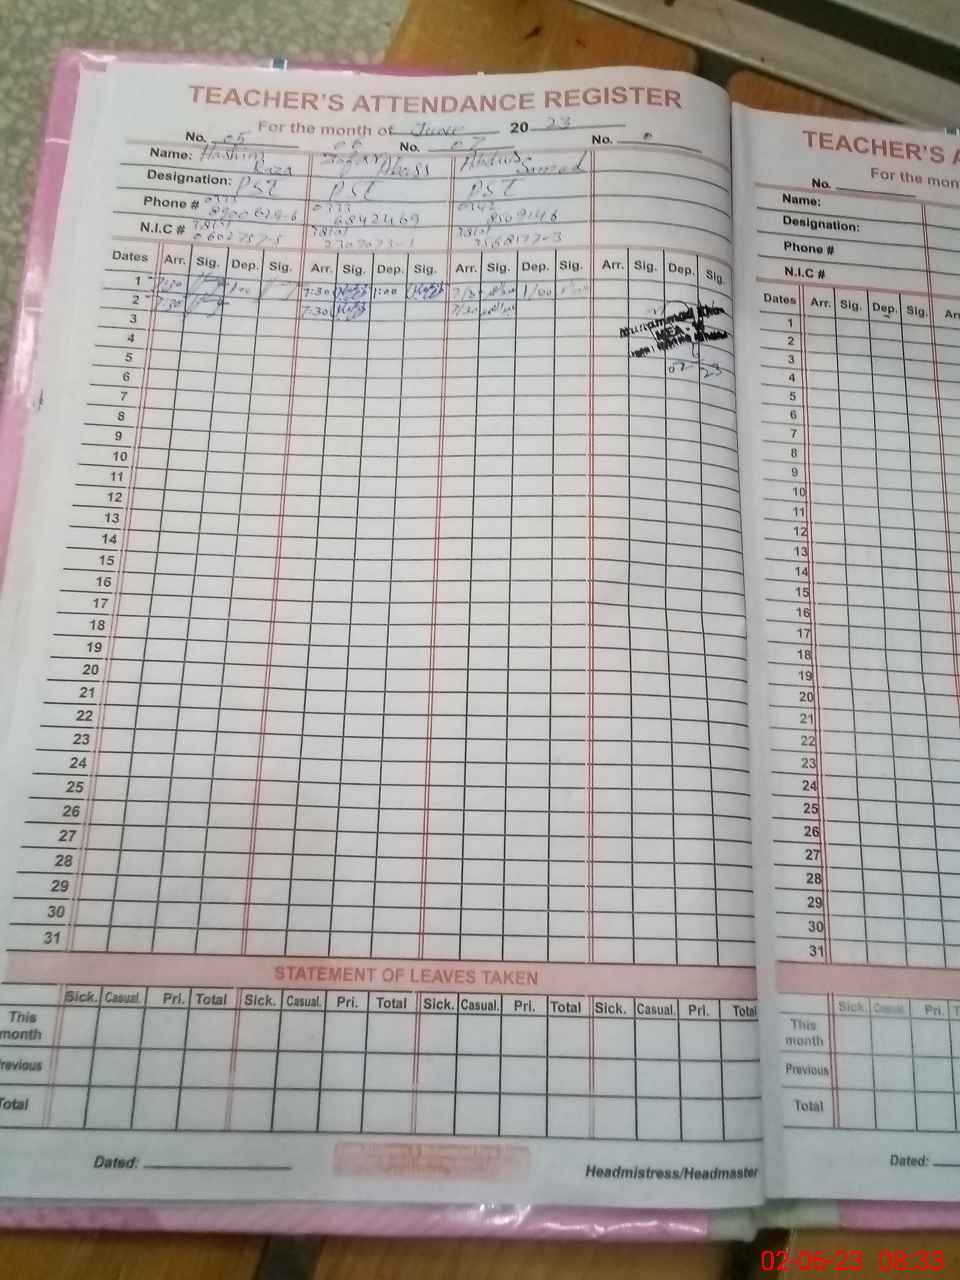 TEACHER'S ATTENDANCE REGISTER
For the month of June 2023
No. 05 06 No. 07 No.
Name: Hashim Raza Abass Abdus Samad
Designation: PST PST PST
Phone # 0333 0333 0342
6842469 8569146
N.I.C #
Dates Arr. Sig. Dep. Sig. Arr. Sig. Dep. Sig. Arr. Sig. Dep. Sig. Arr. Sig. Dep. Sig.
1 7:30 1:00 7:30 1:00 7/30 1/00
2 7:30 7:30 7/30
3
4
5
6
7
8
9
10
11
12
13
14
15
16
17
18
19
20
21
22
23
24
25
26
27
28
29
30
31
STATEMENT OF LEAVES TAKEN
Sick. Casual. Pri. Total Sick. Casual. Pri. Total Sick. Casual. Pri. Total Sick. Casual. Pri. Total
This month
Previous
Total
Dated:
Headmistress/Headmaster
TEACHER'S A
For the mon
No.
Name:
Designation:
Phone #
N.I.C #
Dates Arr. Sig. Dep. Sig.
1
2
3
4
5
6
7
8
9
10
11
12
13
14
15
16
17
18
19
20
21
22
23
24
25
26
27
28
29
30
31
Sick. Casual. Pri.
This month
Previous
Total
Dated:
02-06-23 08:33